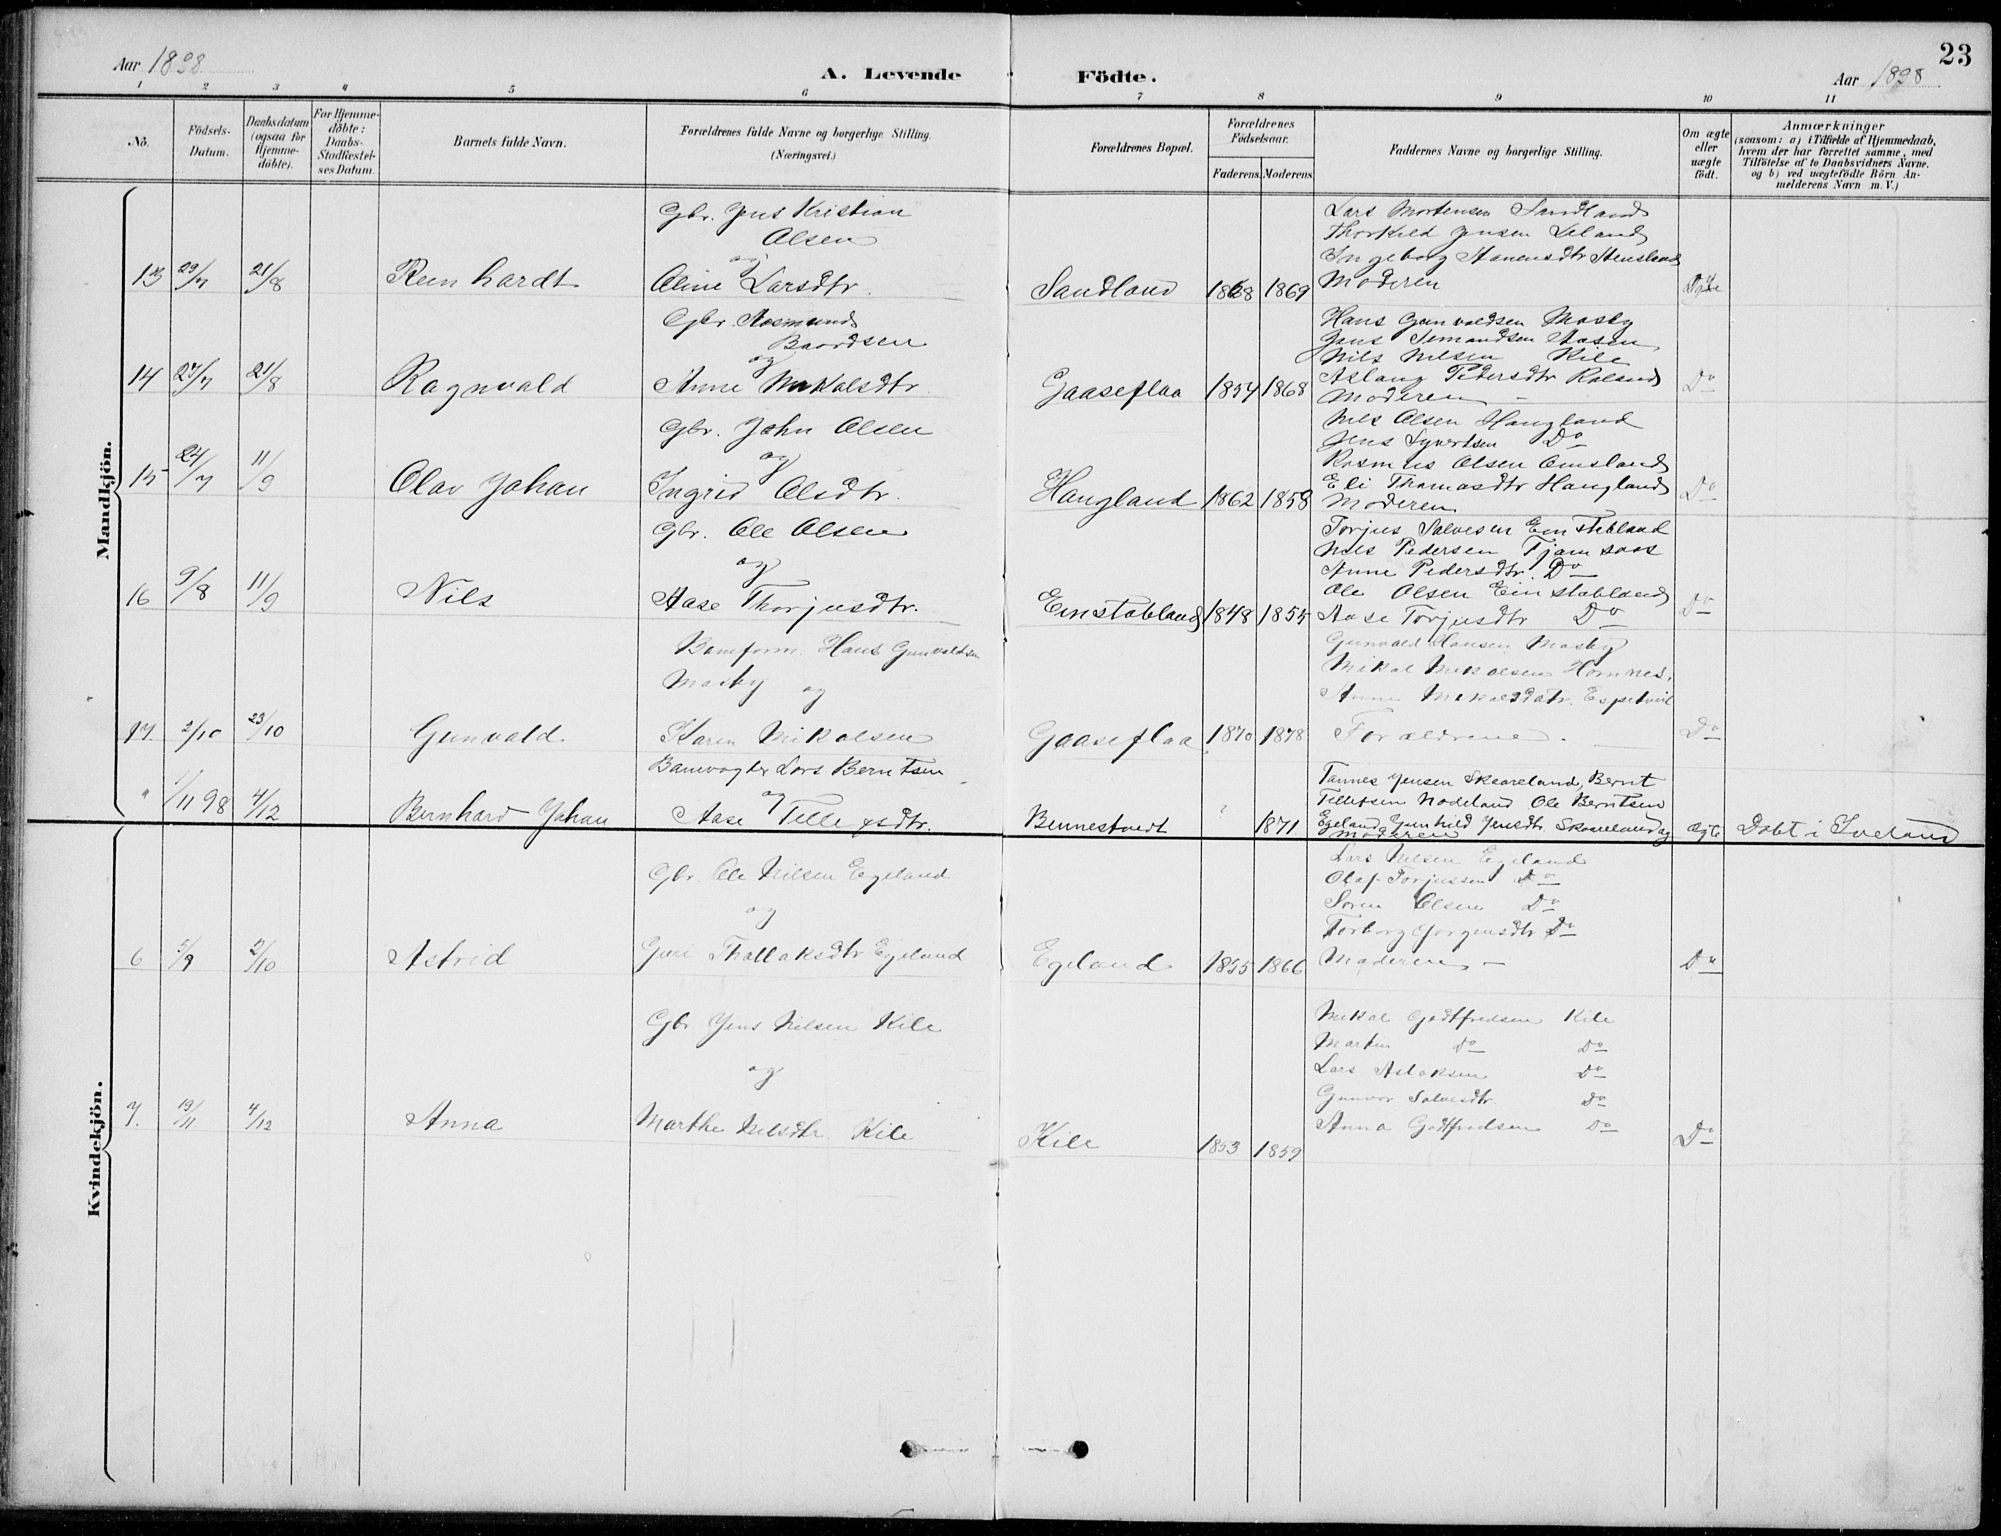 23
Aar 1898
A. Levende Födte.
Aar 1898
1 2 3 4 5 6 7 8 9 10 11
No.
Födsels-Datum.
Daabsdatum (ogsaa for Hjemmedöbte).
For Hjemmedöbte: Daabs-Stadfæstelses Datum.
Barnets fulde Navn.
Forældrenes fulde Navne og borgerlige Stilling. (Næringsvei.)
Forældrenes Bopæl.
Forældrenes Födselsaar.
Faderens. Moderens.
Faddernes Navne og borgerlige Stilling.
Om ægte eller uægte födt.
Anmærkninger (saasom: a) i Tilfælde af Hjemmedaab, hvem der har forrettet samme, med Tilföielse af to Daabsvidners Navne, og b) ved uægtefödte Börn Anmelderens Navn m. V.)
Mandkjön.
Gbr. Jens Kristian
Olsen
og
13 29/7 21/8 Reinhardt Aline Larsdtr. Sandland 1868 1869
Lars Mortensen Sandland
Thorkild Jensen Leland
Ingeborg Hansdtr Stensland
Moderen
Gbr. Aasmund
Baardsen
og
14 27/7 21/8 Ragnvald Anne Mikalsdtr. Gaaseflaa 1854 1868 Do
Hans Gunvaldsen Mosby
Jens Simondsen Aasen
Nils Nilsen Kile
Aslaug Pedersdtr Roland
Moderen
Gbr. John Olsen
og
15 24/7 11/9 Olav Johan Ingrid Olsdtr. Haugland 1862 1858 Do
Nils Olsen Haugland
Jens Syvertsen Do
Rasmus Olsen Omsland
Eli Thomasdtr Haugland
Moderen
Gbr. Ole Olsen
og
16 9/8 11/9 Nils Aase Thorjusdtr. Einstabland 1848 1855 Do
Torjus Salvesen Einstabland
Nils Pedersen Tjomsaas
Anne Pedersdtr. Do
Ole Olsen Einstabland
Aase Torjusdtr Do
Baneform. Hans Gunvaldsen
Mosby og
17. 2/10 23/10 Gunvald. Karen Mikalsen Gaaseflaa 1870 1878 Do
Gunvald Hansen Mosby
Mikal Mikalsen Homnes.
Anne Mikalsdatr. Espetveit
Forældrene.
Banevogter Lars Berntsen
og
" 1/11 98 4/12 Bernhard Johan Aase Tellefsdtr. Bennestvedt ? 1871 ægte Döbt i Iveland
Tannes Jensen Skaareland, Bernt
Tellefsen Nodeland Ole Berntsen
Egeland Gunhild Jensdtr. Skaareland og
Moderen
Kvindekjön.
Gbr. Ole Nilsen Egeland
og
6 5/9 2/10 Astrid Guri Thollaksdtr Egeland Egeland 1855 1866 Do
Lars Nilsen Egeland
Olaf Torjussen Do
Soren Olsen Do
Torborg Jorgensdtr Do
Moderen
Gbr Jens Nilsen Kile
og
7. 19/11 4/12 Anna Marthe Nilsdtr. Kile Kile 1853 1859 Do
Mikal Godtfredsen Kile
Martin Do Do
Lars Aslaksen Do
Gunvor Salvesdtr. Do
Anna Godtfredsen Do